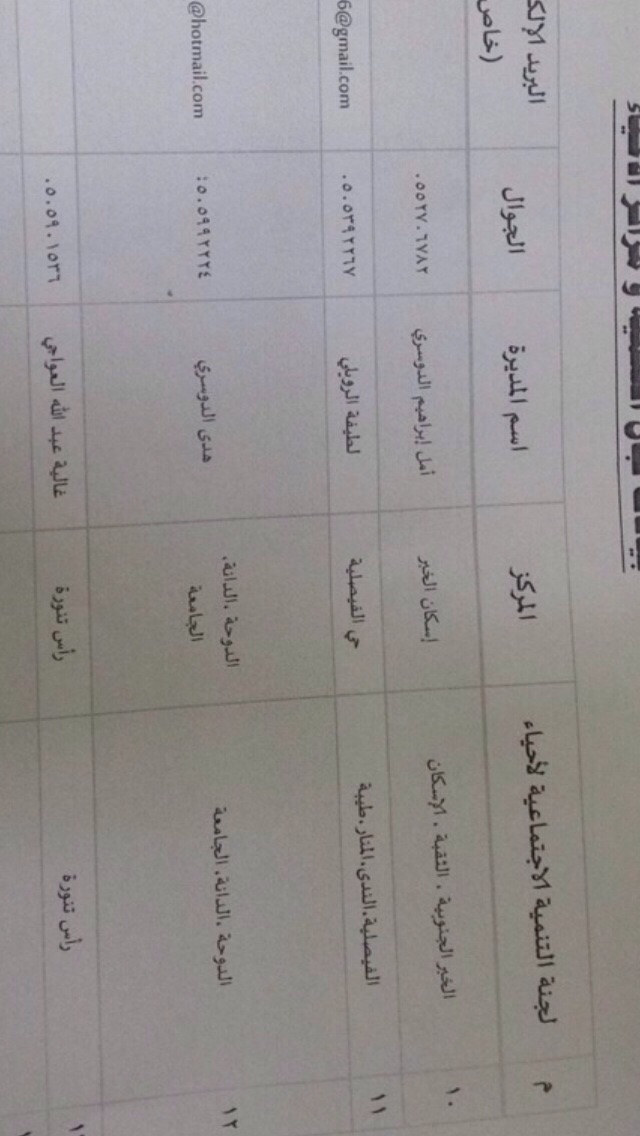 لجان التنمية و مراكز الأحياء
م لجنة التنمية الاجتماعية لأحياء المركز اسم المديرة الجوال البريد الإلك
(خاص
١٠ الخبر الجنوبية ، الثقبة ، الإسكان إسكان الخبر أمل إبراهيم الدوسري ٠٥٥٢٧٠٦٧٨٢
١١ الفيصلية،الندى،المنار،طيبة حي الفيصلية لطيفة الرويلي ٠٥٠٥٣٩٢٢٦٧ 6@gmail.com
١٢ الدوحة ،الدانة، الجامعة الدوحة ،الدانة، هدى الدوسري ٠٥٠٥٩٩٢٢٢٤ @hotmail.com
الجامعة
رأس تنورة رأس تنورة غالية عبد الله العواجي ٠٥٠٥٩٠١٥٣٦